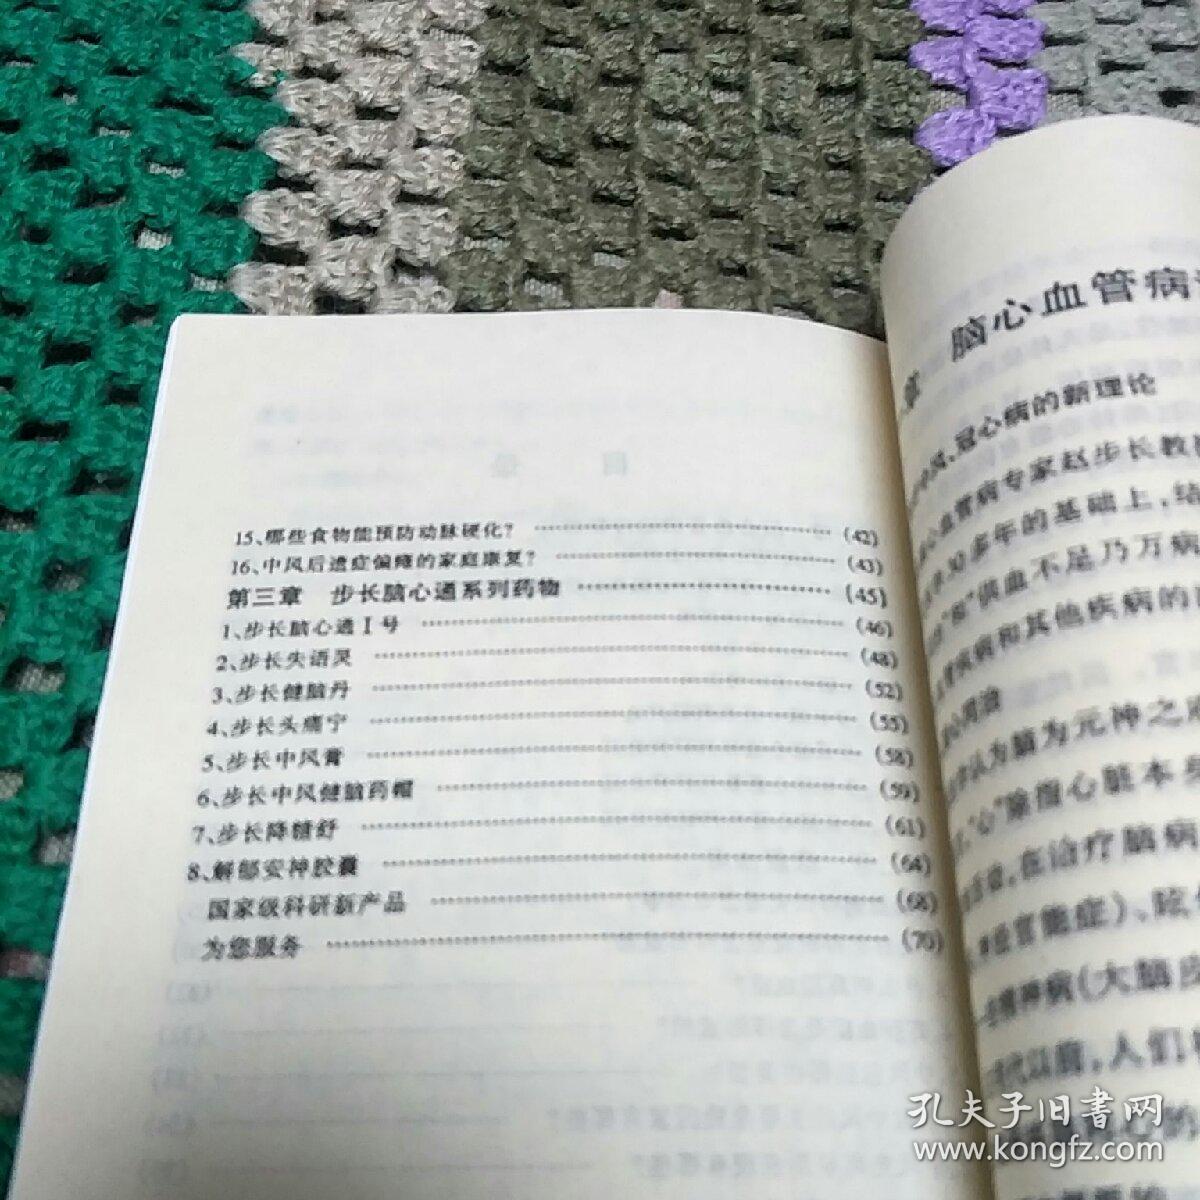 15、哪些食物能预防动脉硬化？ (42)
16、中风后遗症偏瘫的家庭康复？ (43)
第三章 步长脑心通系列药物 (45)
1、步长脑心通Ⅰ号 (46)
2、步长失语灵 (48)
3、步长健脑丹 (52)
4、步长头痛宁 (55)
5、步长中风膏 (58)
6、步长中风健脑药帽 (59)
7、步长降糖舒 (61)
8、解郁安神胶囊 (64)
国家级科研新产品 (68)
为您服务 (70)
章 脑心血管病
中风、冠心病的新理论
心血管病专家赵步长教
30多年的基础上，结
供血不足乃万病
疾病和其他疾病的
脑心同治
认为脑为元神之
"心"除指心脏本身
在治疗脑病
神经官能症)、眩
精神病(大脑皮
代以前，人们
的
孔夫子旧书网
www.kongfz.com